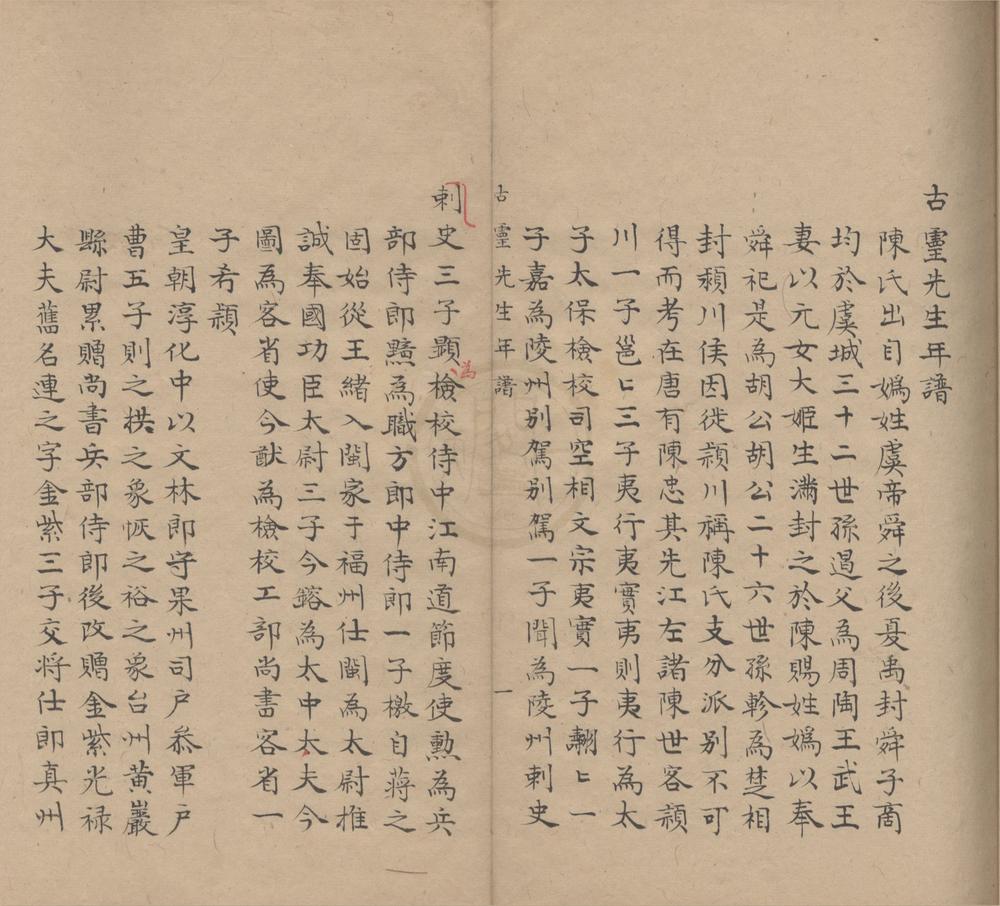 古靈先生年譜
陳氏出自嬀姓虞帝舜之後夏禹封舜子商
均於虞城三十二世孫遏父為周陶王武王
妻以元女大姬生滿封之於陳賜姓嬀以奉
舜祀是為胡公胡公二十六世孫軫為楚相
封潁川侯因徙潁川稱陳氏支分派別不可
得而考在唐有陳忠其先江左諸陳世客潁
川一子邕〻三子夷行夷實夷則夷行為太
子太保檢校司空相文宗夷實一子翽〻一
子嘉為陵州別駕別駕一子聞為陵州刺史
古靈先生年譜 一
刺史三子顯檢校侍中江南道節度使勳為兵
為
部侍郎黯為職方郎中侍郎一子檄自蔣之
固始從王緒入閩家于福州仕閩為太尉推
誠奉國功臣太尉三子令鎔為太中大夫令
圖為客省使令猷為檢校工部尚書客省一
子希潁
皇朝淳化中以文林郎守果州司戶叅軍戶
曹五子則之拱之象恢之裕之象台州黃巖
縣尉累贈尚書兵部侍郎後改贈金紫光祿
大夫舊名連之字金紫三子交將仕郎真州